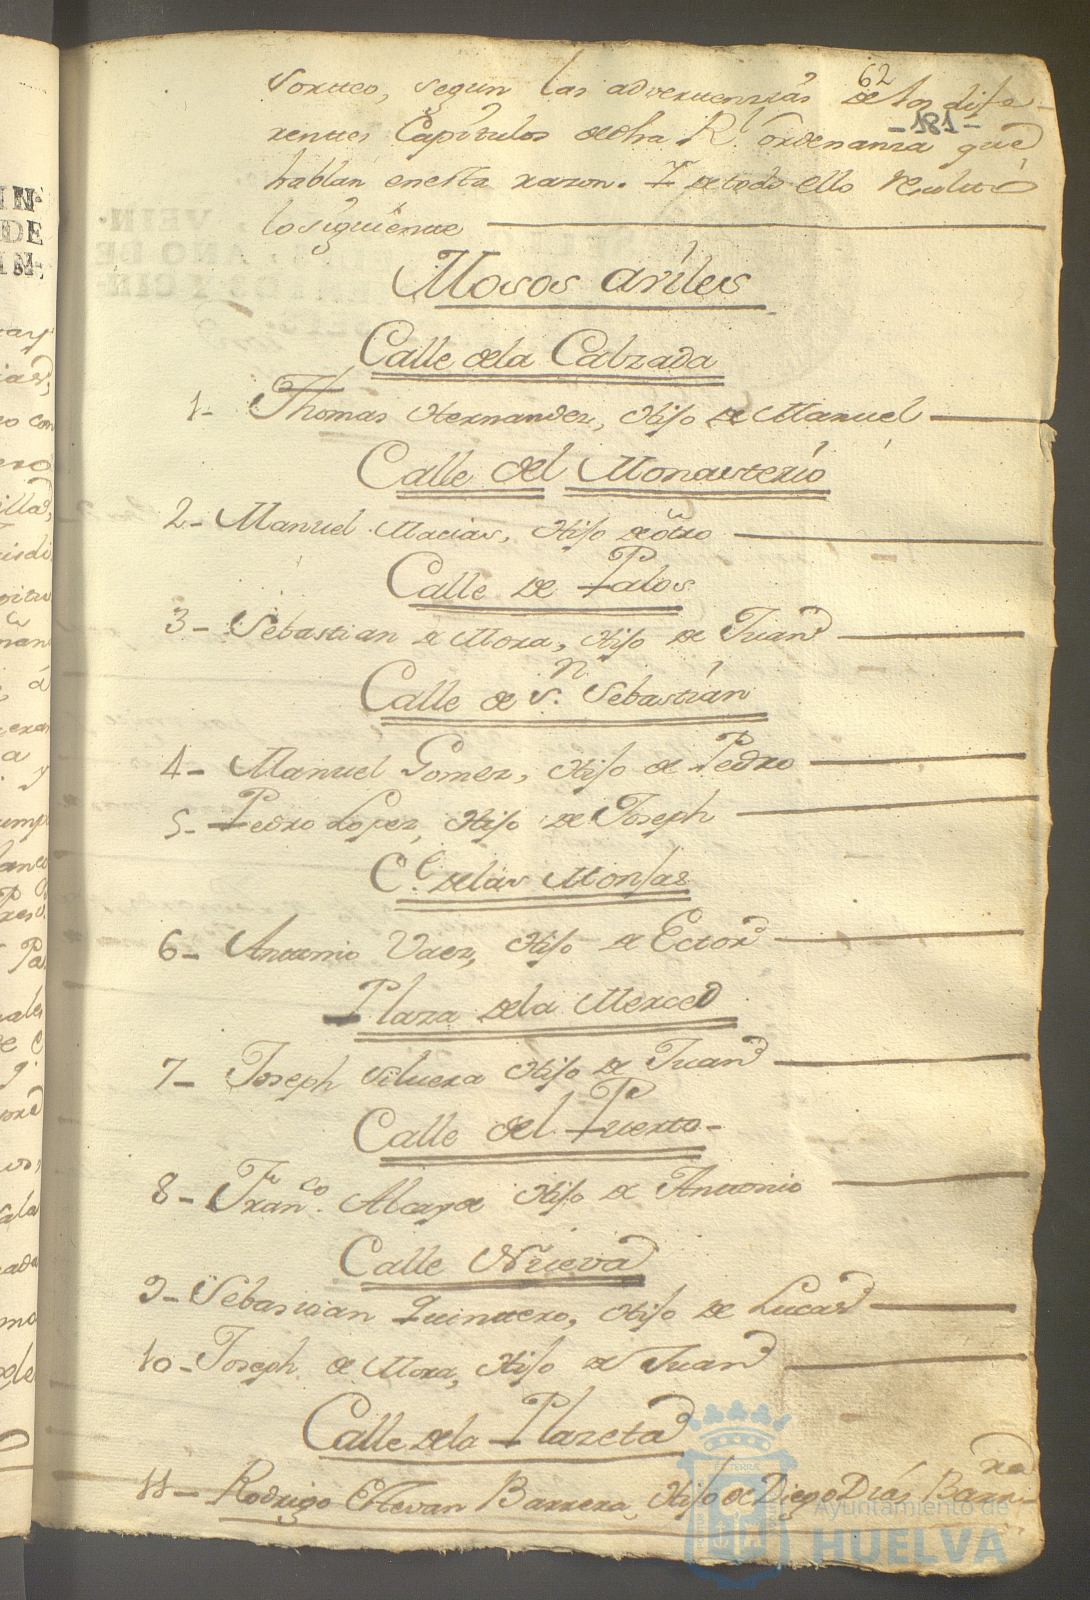 62
Sorteo, segun las advertenzias de los dife-
-181-
rentes Capitulos de dha Rl. ordenanza que
hablan en esta razon. Y de todo ello resultó
lo siguiente
Mosos aviles
Calle dela Calzada
1- Thomas Hernandez, Hijo de Manuel
Calle del Monasterio
2- Manuel Macias, Hijo de otro
Calle de Palos
3- Sebastian de Mora, Hijo de Juan
Calle de Sn. Sebastián
4- Manuel Gomez, Hijo de Pedro
5- Pedro Lopez, Hijo de Joseph
Ce. delas Monjas
6- Antonio Vaez, Hijo de Ector
Plaza dela Merced
7- Joseph Silvera Hijo de Juan
Calle del Puerto-
8- Franco. Alcayde Hijo de Antonio
Calle Nueva
9- Sebastian Quintero, Hijo de Lucas
10- Joseph de Mora, Hijo de Juan
Calle dela Plazeta
11- Rodrigo Estevan Barrera, Hijo de Diego Días Barra
Ayuntamiento de
HUELVA